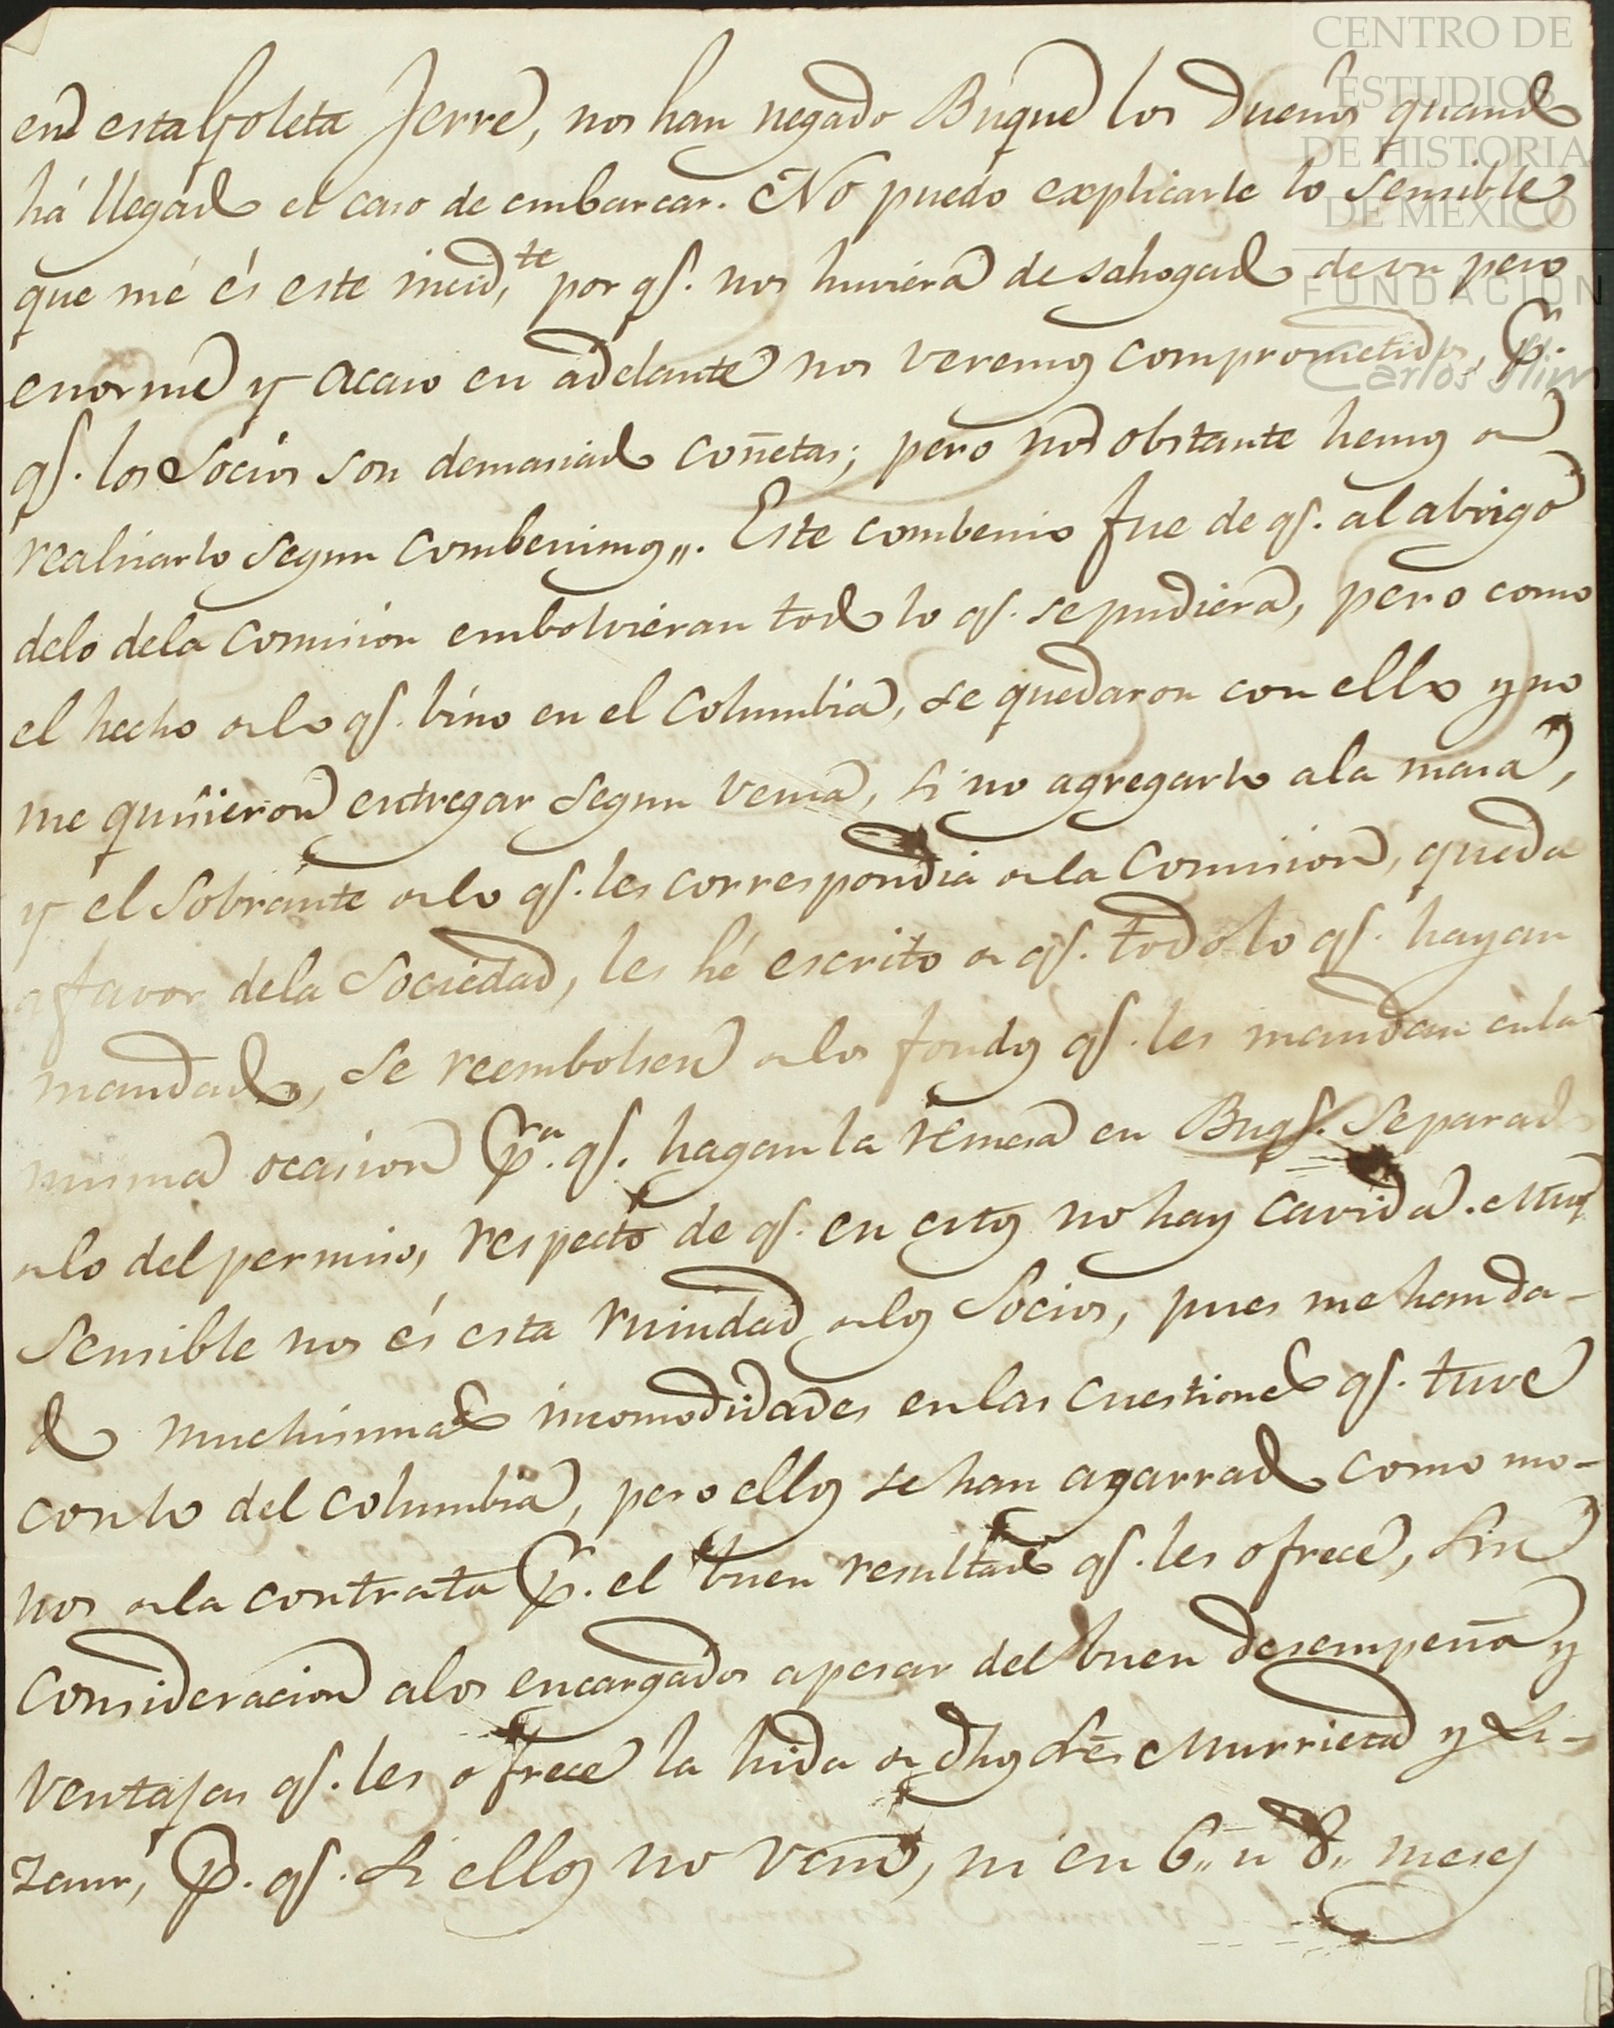 CENTRO DE
ESTUDIOS
DE HISTORIA
DE MEXICO
FUNDACION
Carlos Slim
en esta Goleta Jerre, nos han negado Buque los Dueños quando
há llegado el caso de embarcar. No puedo explicarle lo sensible
que me és este incid.te por q.e nos huviera desahogado de un peso
enorme y acaso en adelante nos veremos comprometidos, p.r
q.e los Socios son demasiado coñetas; pero no obstante hemos de
realizarlo segun combenimos,,. Este combenio fue de q.e al abrigo
de lo de la Comision embolvieran todo lo q.e se pudiera, pero como
el hecho de lo q.e bino en el Columbia, se quedaron con ello y no
me quisieron entregar segun venia, si no agregarlo a la masa,
y el Sobrante de lo q.e les correspondia de la Comision, queda
a favor de la Sociedad, les hé escrito de q.e todo lo q.e hayan
mandado, se reembolsen de los fondos q.e les mandan en la
misma ocasion p.ra q.e hagan la remesa en Buq.e Separado
de lo del permiso, respecto de q.e en estos no hay cavida. Muy
Sensible nos és esta ruindad de los Socios, pues me han da-
do muchisimas incomodidades en las cuestiones q.e tuve
con lo del Columbia, pero ellos se han agarrado como mo-
nos de la contrata p.r el buen resultado q.e les ofrece, sin
consideracion a los encargados apesar del buen desempeño y
ventajas q.e les ofrece la hida de dhos Sres Murrieta y Li-
zaur, p.r q.e si ellos no ven.n, ni en 6,, u 8,, meses